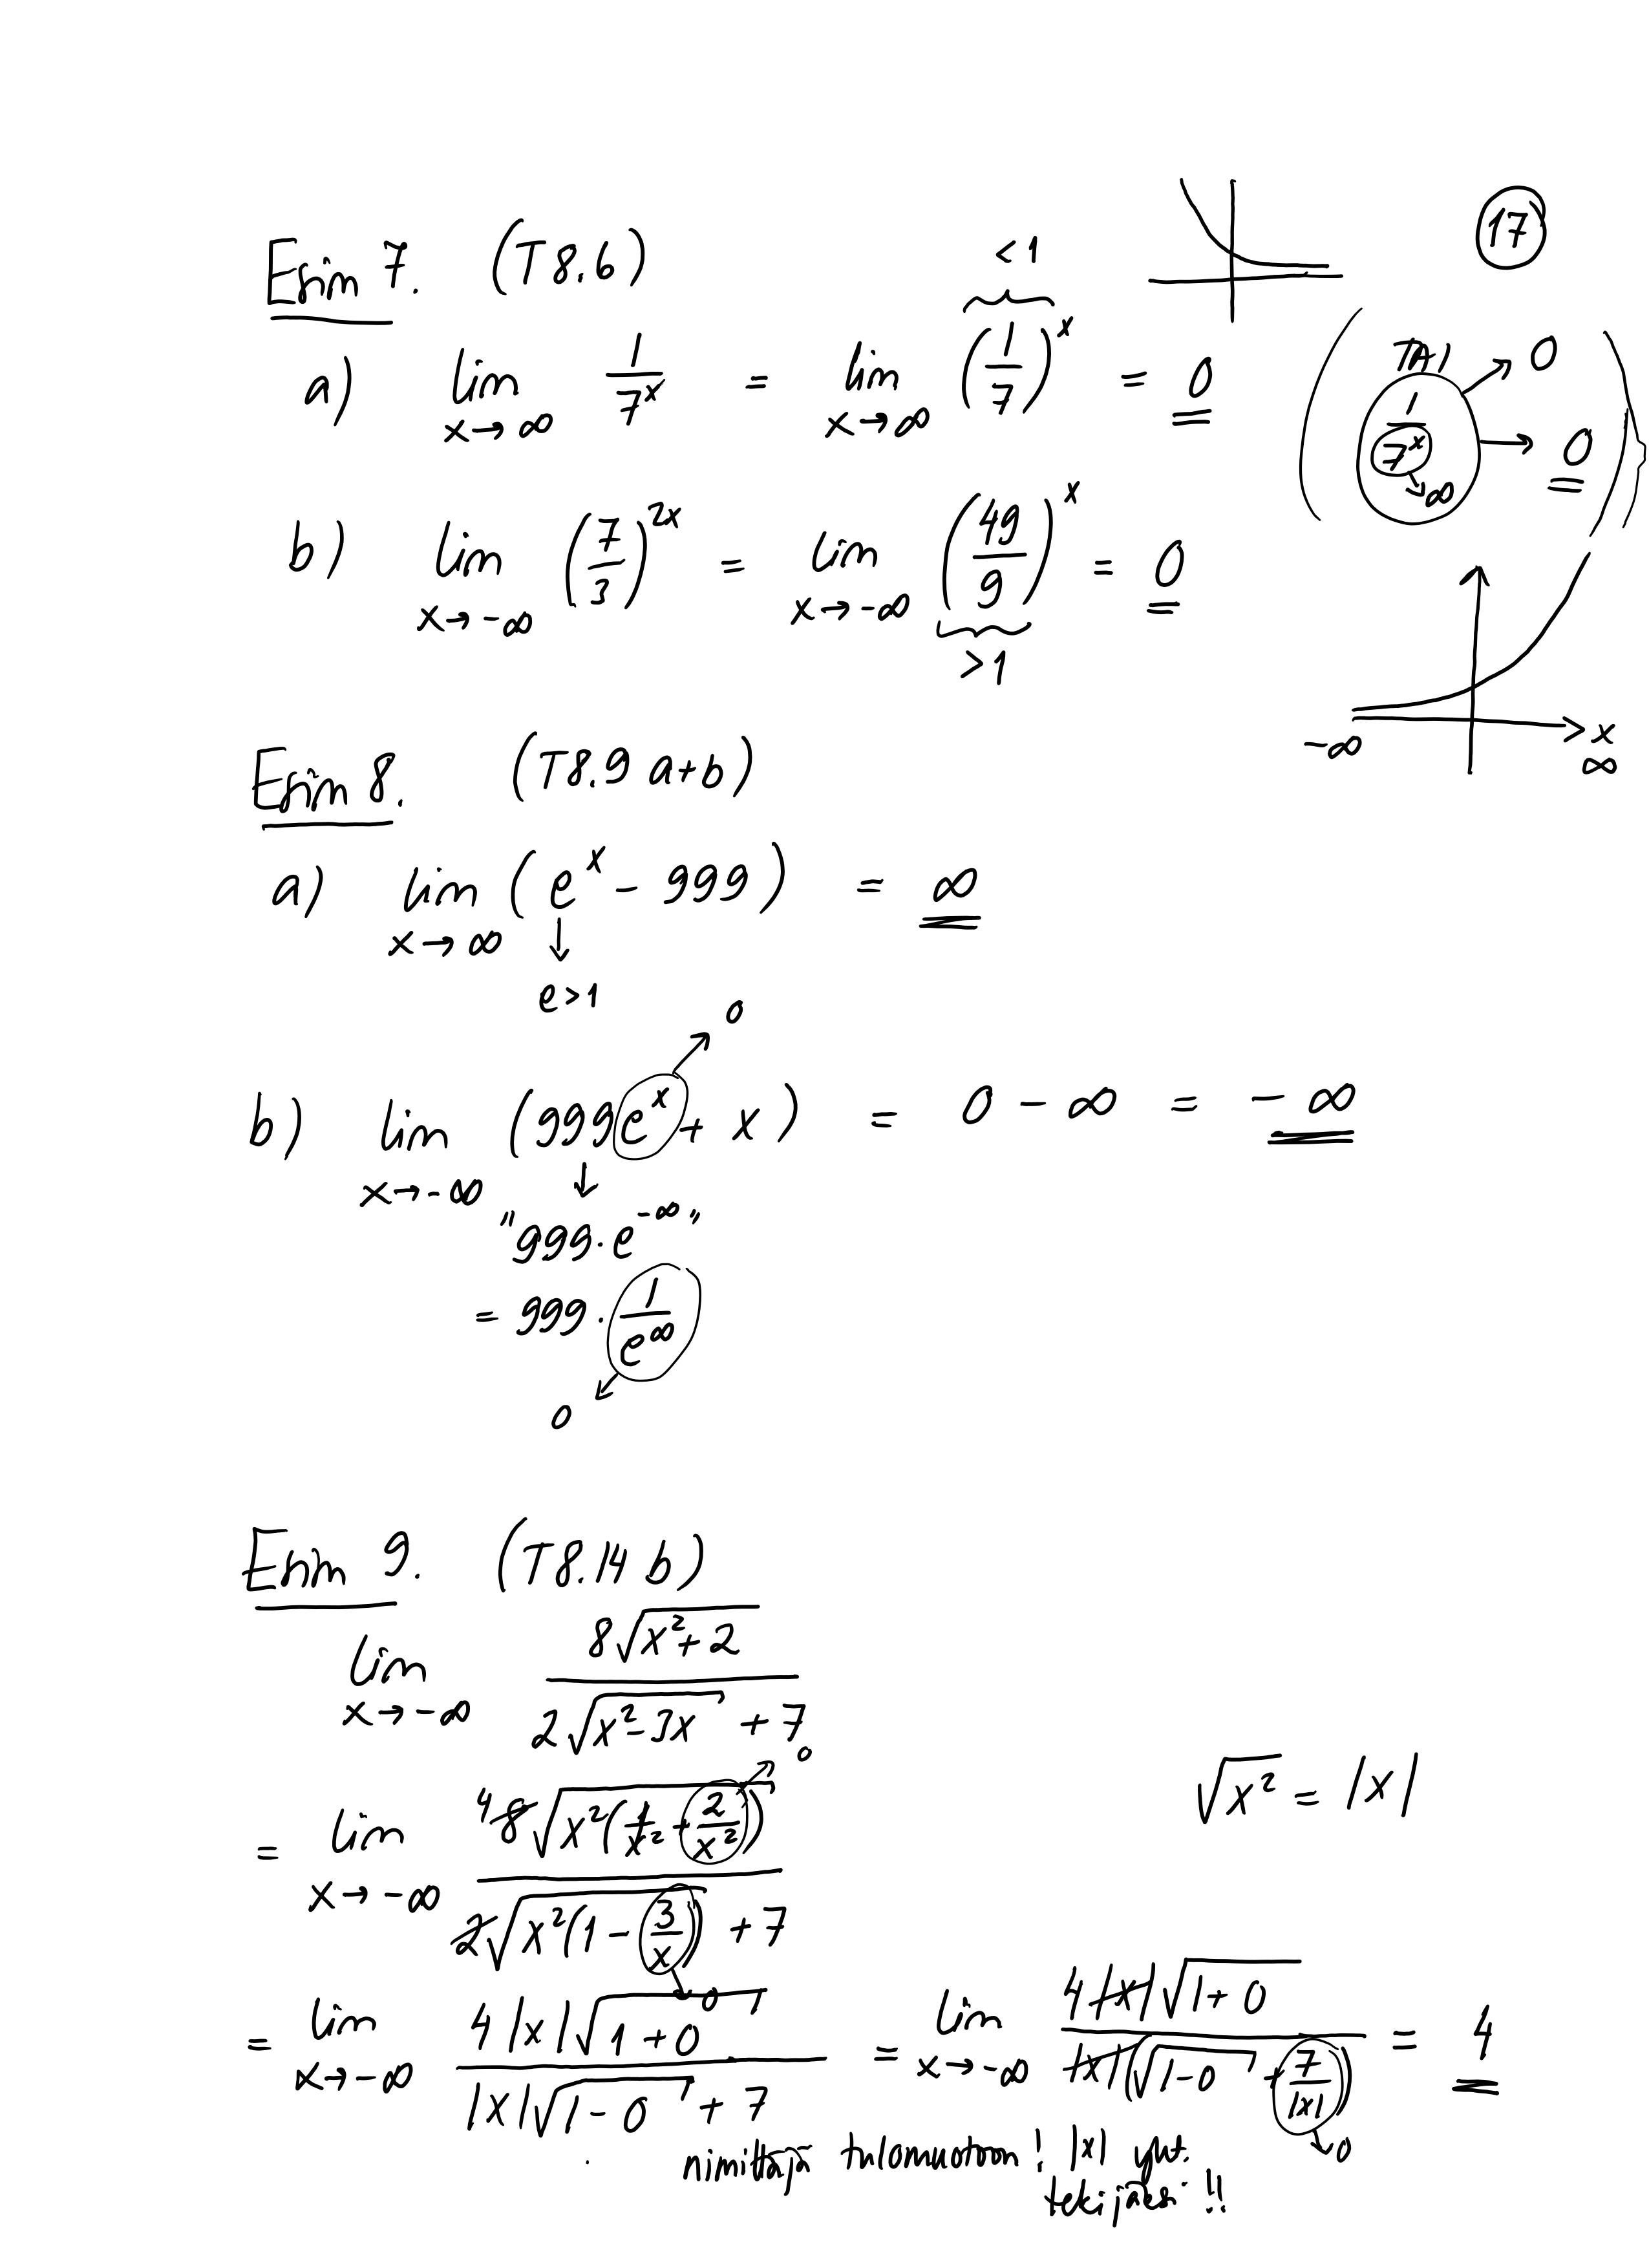 17
Esim 7. (T8.6)
<1
a) lim x→∞ 1/7^x = lim x→∞ (1/7)^x = 0
( 1/7^x → 0 → 0 )
7^x → ∞
b) lim x→-∞ (7/3)^2x = lim x→-∞ (49/9)^x = 0
>1
-∞ x ∞
Esim 8. (T8.9 a+b)
a) lim x→∞ (e^x - 999) = ∞
e>1
0
b) lim x→-∞ (999e^x + x) = 0 - ∞ = -∞
"999·e^-∞"
= 999·1/e^∞
0
Esim 9. (T8.14 b)
lim x→-∞ 8√(x²+2) / 2√(x²-3x) + 7
√x² = |x|
= lim x→-∞ 4 8√(x²(1 + 2/x²)) / 2√(x²(1 - 3/x)) + 7
0
0
= lim x→-∞ 4|x|√(1+0) / |x|√(1-0) + 7 = lim x→-∞ 4|x|√(1+0) / |x|(√(1-0) + 7/|x|) = 4
0
nimittäjä tulomuotoon! |x| yht.
tekijäksi!!